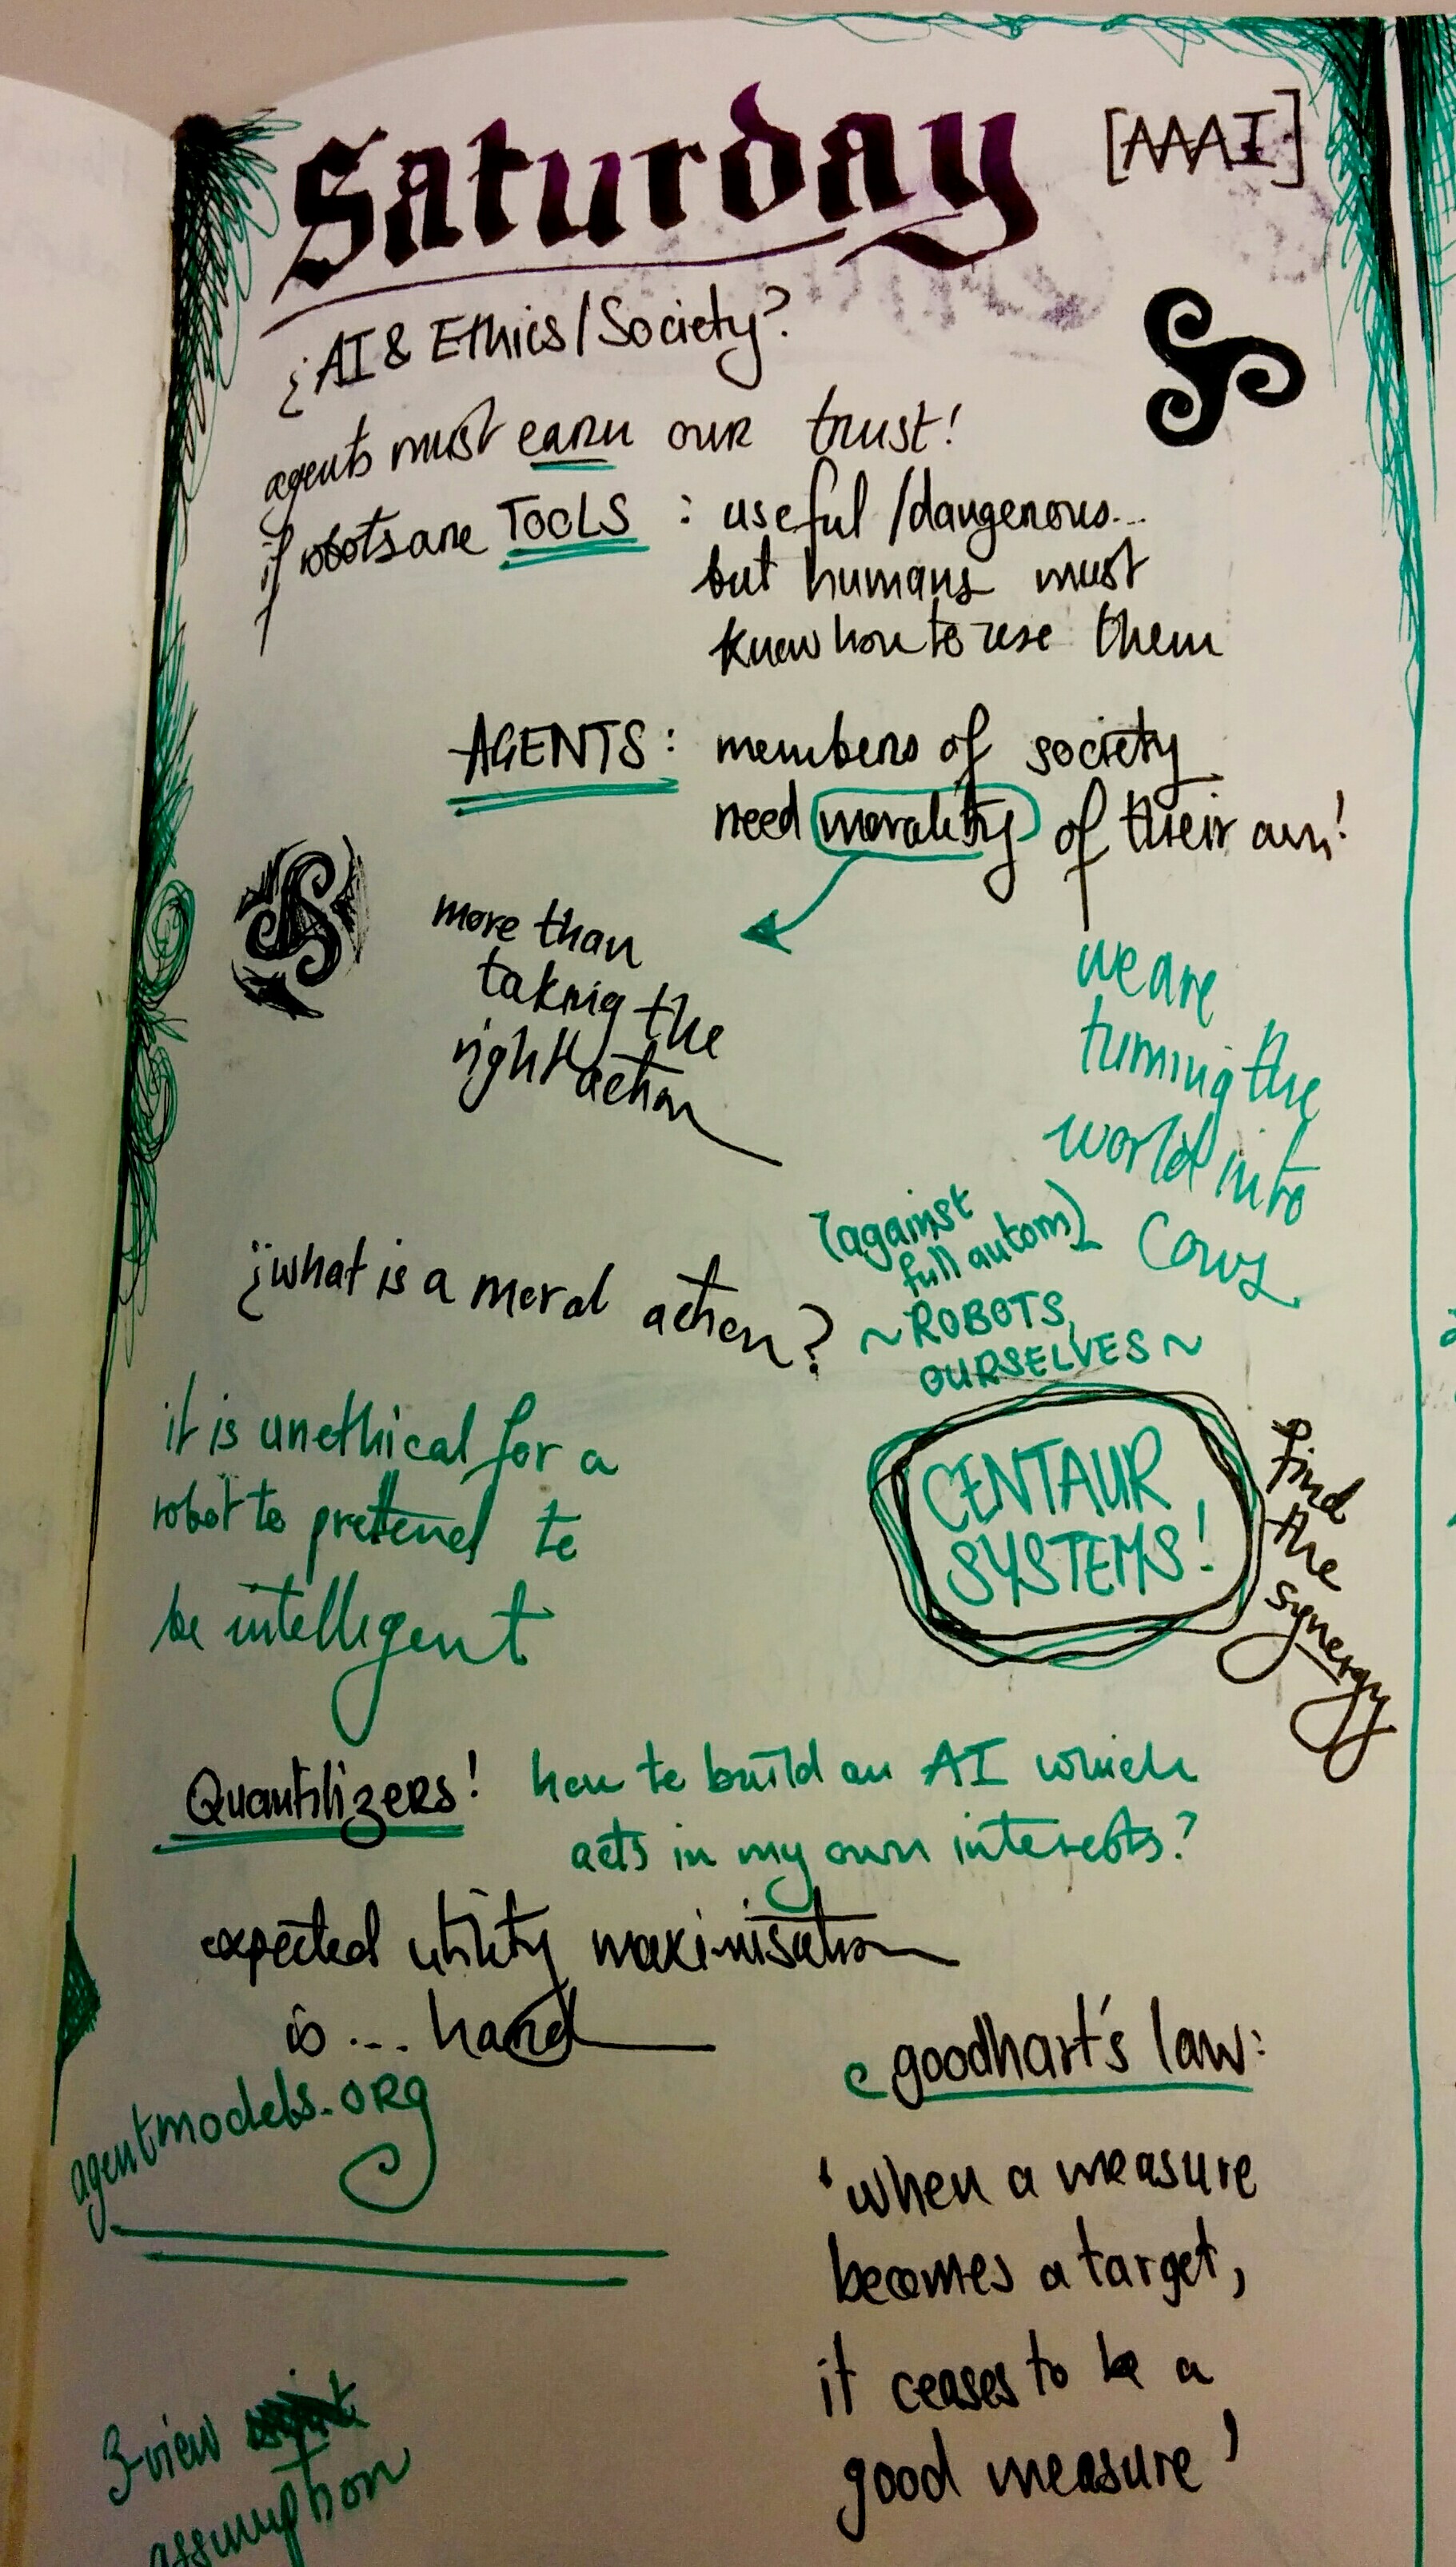 Saturday
[AAAI]
¿AI & Ethics/Society?
agents must earn our trust!
if robots are TOOLS : useful/dangerous...
but humans must
know how to use them
AGENTS: members of society
need morality of their own!
more than
taking the
right action
we are
turning the
world into
Cows
¿what is a moral action?
(against
full autom)
~ROBOTS,
OURSELVES~
CENTAUR
SYSTEMS!
find
the
synergy
it is unethical for a
robot to pretend to
be intelligent
Quantilizers! how to build an AI which
acts in my own interests?
expected utility maximisation
is... hard
agentmodels.org
goodhart's law:
'when a measure
becomes a target,
it ceases to be a
good measure'
3-view
assumption